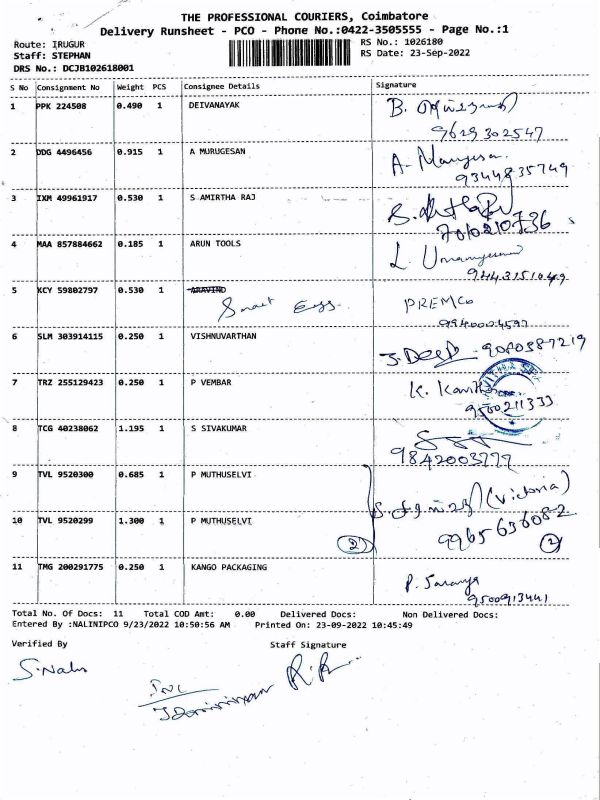 THE PROFESSIONAL COURIERS, Coimbatore
Delivery Runsheet - PCO - Phone No.:0422-3505555 - Page No.:1
Route: IRUGUR RS No.: 1026180
Staff: STEPHAN RS Date: 23-Sep-2022
DRS No.: DCJB102618001
S No Consignment No Weight PCS Consignee Details Signature
1 PPK 224508 0.490 1 DEIVANAYAK B.
9629302547
2 DDG 4496456 0.915 1 A MURUGESAN A. Murugesan
9344835749
3 IXM 49961917 0.530 1 S AMIRTHA RAJ
7010210736
4 MAA 857884662 0.185 1 ARUN TOOLS L.
9443151049
5 KCY 59802797 0.530 1 ARAVIND PREMCO
Smart Eggs
9940004597
6 SLM 303914115 0.250 1 VISHNUVARTHAN J. Deep 9080587219
7 TRZ 255129423 0.250 1 P VEMBAR K.
9500211333
8 TCG 40238062 1.195 1 S SIVAKUMAR
9842003777
9 TVL 9520300 0.685 1 P MUTHUSELVI (Victoria)
10 TVL 9520299 1.300 1 P MUTHUSELVI 9965636082
2 2
11 TMG 200291775 0.250 1 KANGO PACKAGING P. Saranya
9500913441
Total No. Of Docs: 11 Total COD Amt: 0.00 Delivered Docs: Non Delivered Docs:
Entered By :NALINIPCO 9/23/2022 10:50:56 AM Printed On: 23-09-2022 10:45:49
Verified By Staff Signature
S. Nalin